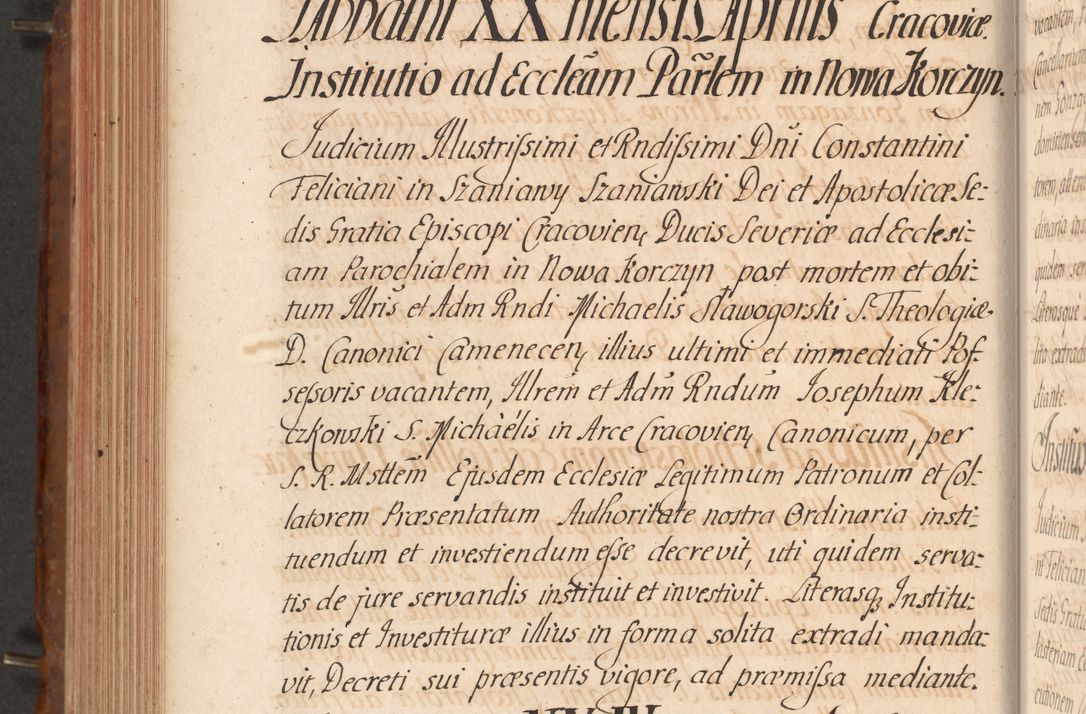 Sabbathi XX mensis Aprilis Cracoviæ.
Institutio ad Ecclẽam Par̃lem in Nowa Korczyn.
Judicium Illustrissimi et Rndissimi Dñi Constantini
Feliciani in Szaniawy Szaniawski Dei et Apostolicæ Se-
dis Gratia Episcopi Cracovien, Ducis Severiæ ad Ecclesi-
am Parochialem in Nowa Korczyn post mortem et obi-
tum Illris et Adm Rndi Michaelis Sławogorski S. Theologiæ
D. Canonici Camenecen, illius ultimi et immediati Pos-
sessoris vacantem, Illrem̃ et Adm̃ Rndum̃ Josephum Kle-
czkowski S. Michaëlis in Arce Cracovien, Canonicum, per
S. R. Msttem̃ Ejusdem Ecclesiæ Legitimum Patronum et Col-
latorem Præsentatum Authoritate nostra Ordinaria insti-
tuendum et investiendum esse decrevit, uti quidem serva-
tis de jure servandis instituit et investivit. Literasq Institu-
tionis et Investituræ illius in forma solita extradi manda-
vit, Decreti sui præsentis vigore, ad præmissa mediante.
vacantem,
Cancellarium
dinaria
quidem ser
Literasque
lito extradi
diante.
Institu
Judicium
ni Felician
Sedis Grati